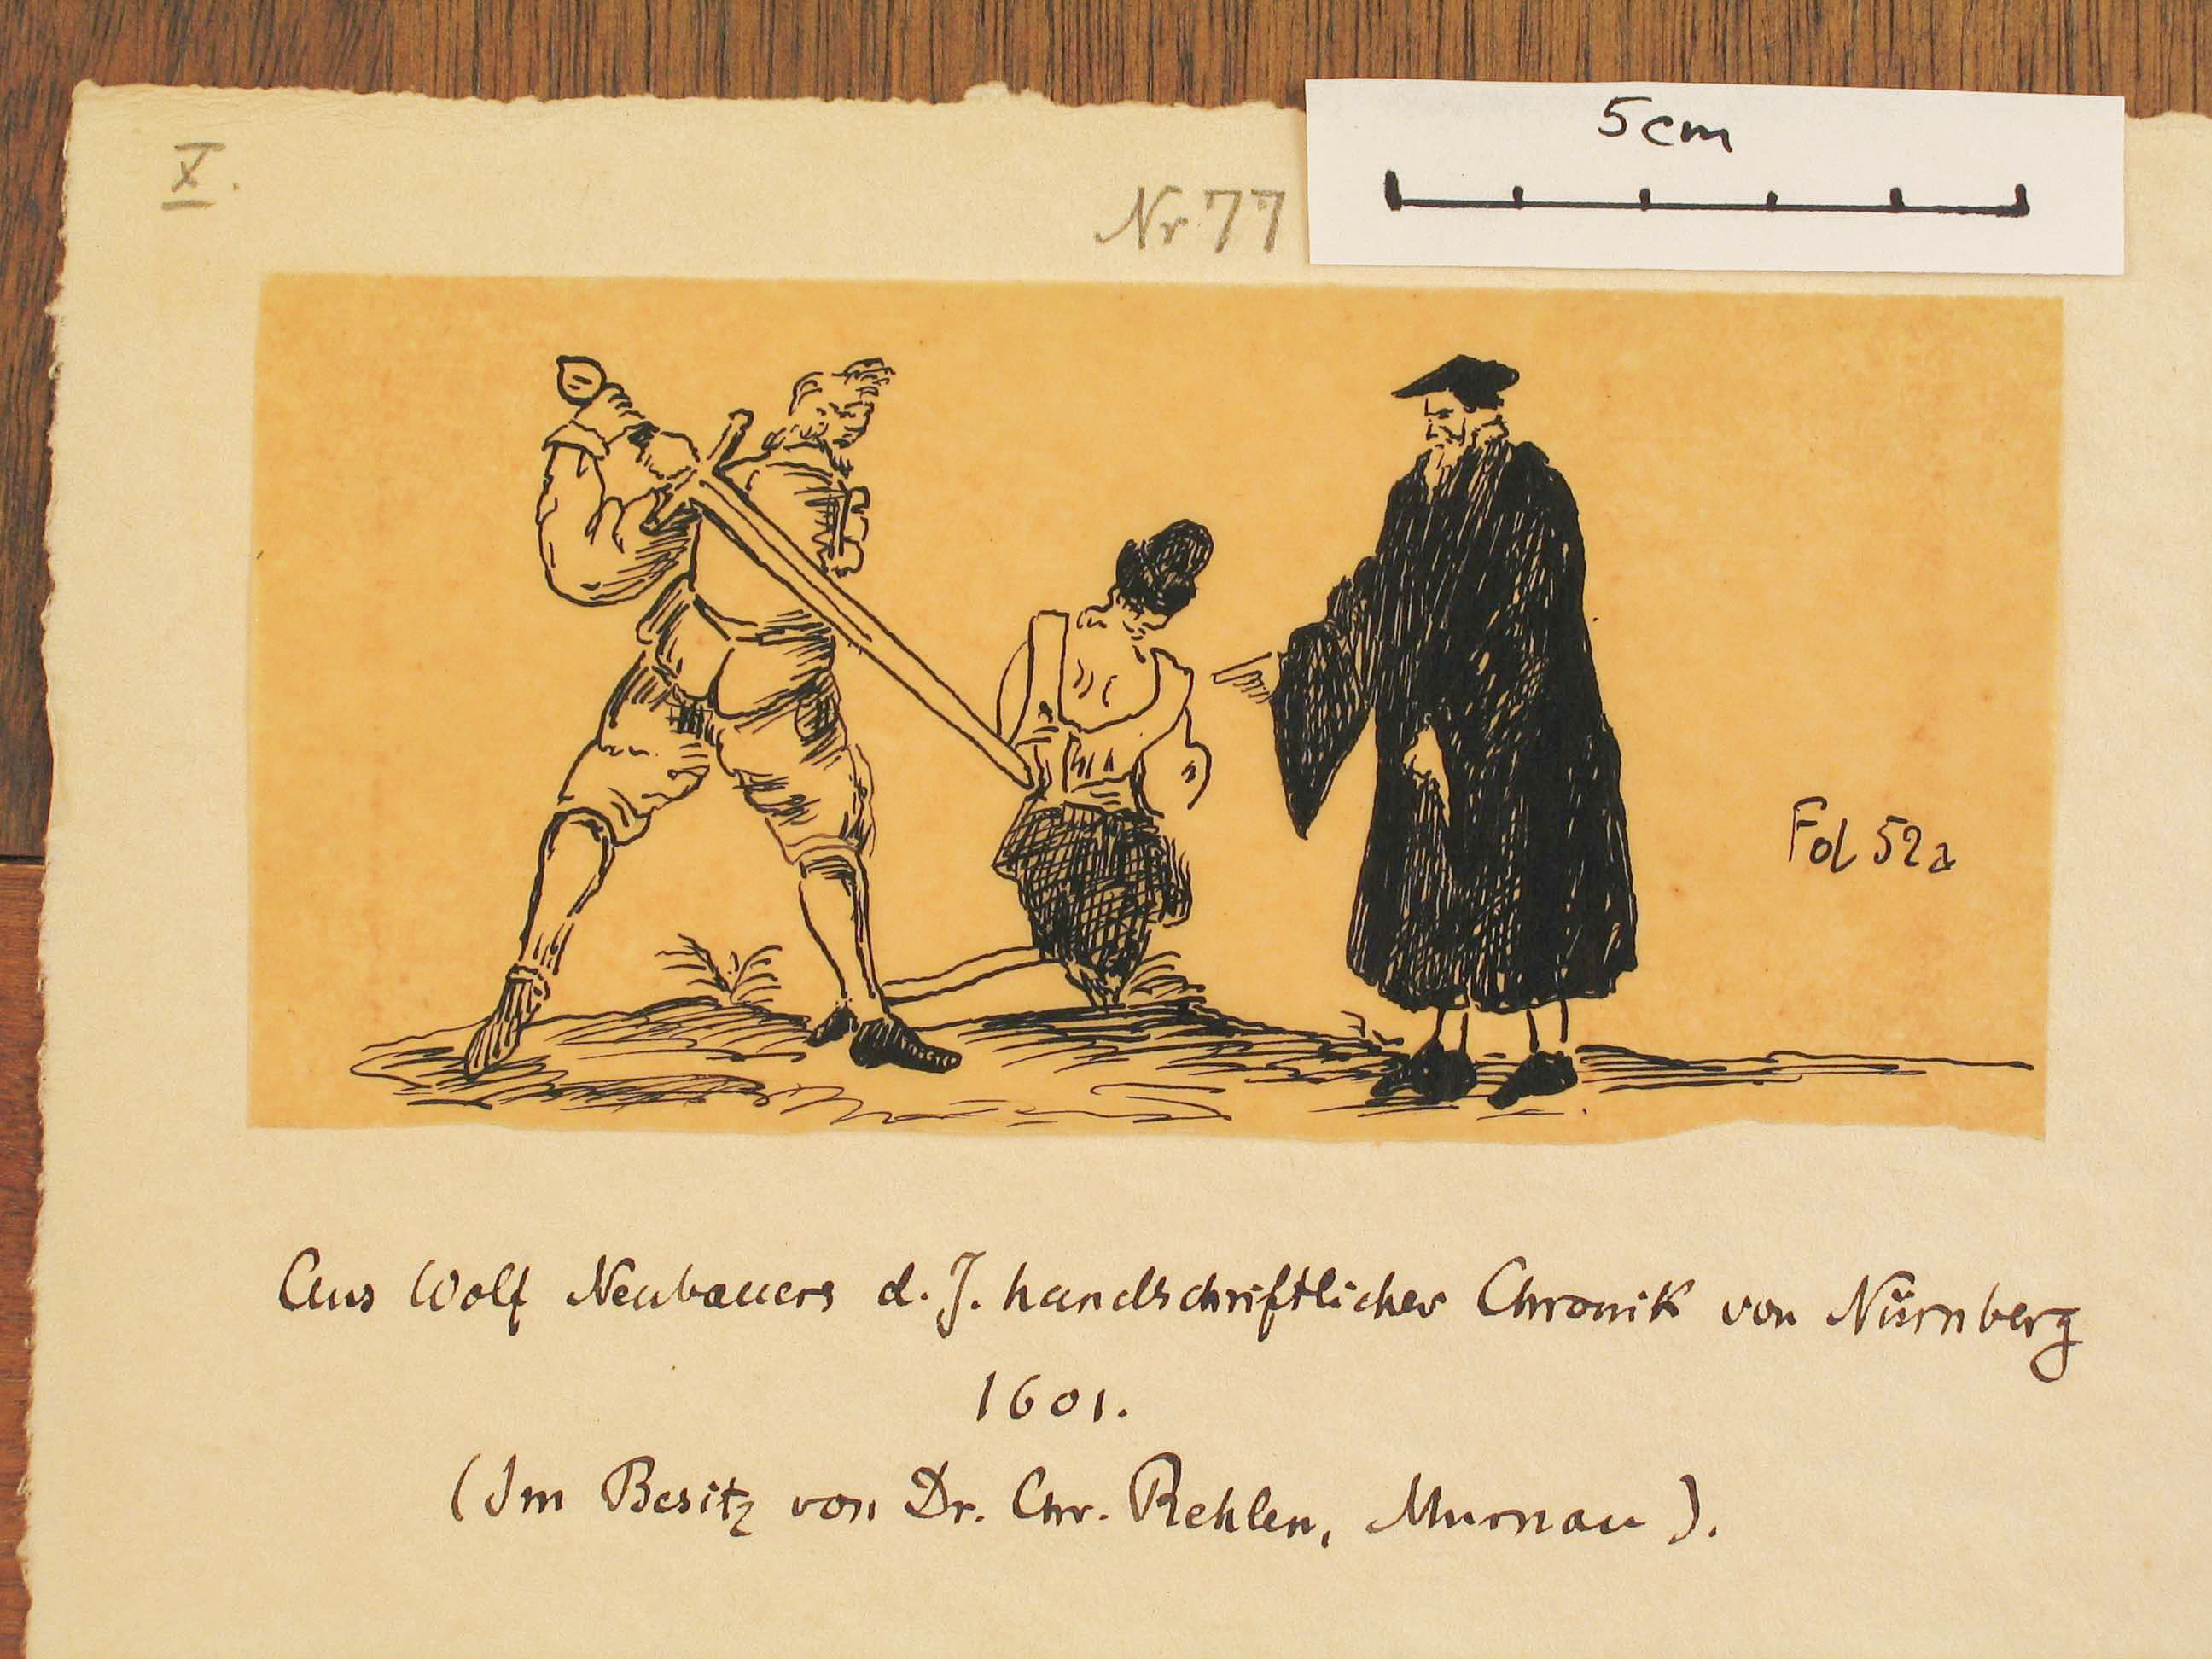 5cm
X.
Nr 77
Fol 52a
Aus Wolf Neubauers d. J. handschriftlicher Chronik von Nürnberg
1601.
(Im Besitz von Dr. Chr. Rehlen, Murnau).